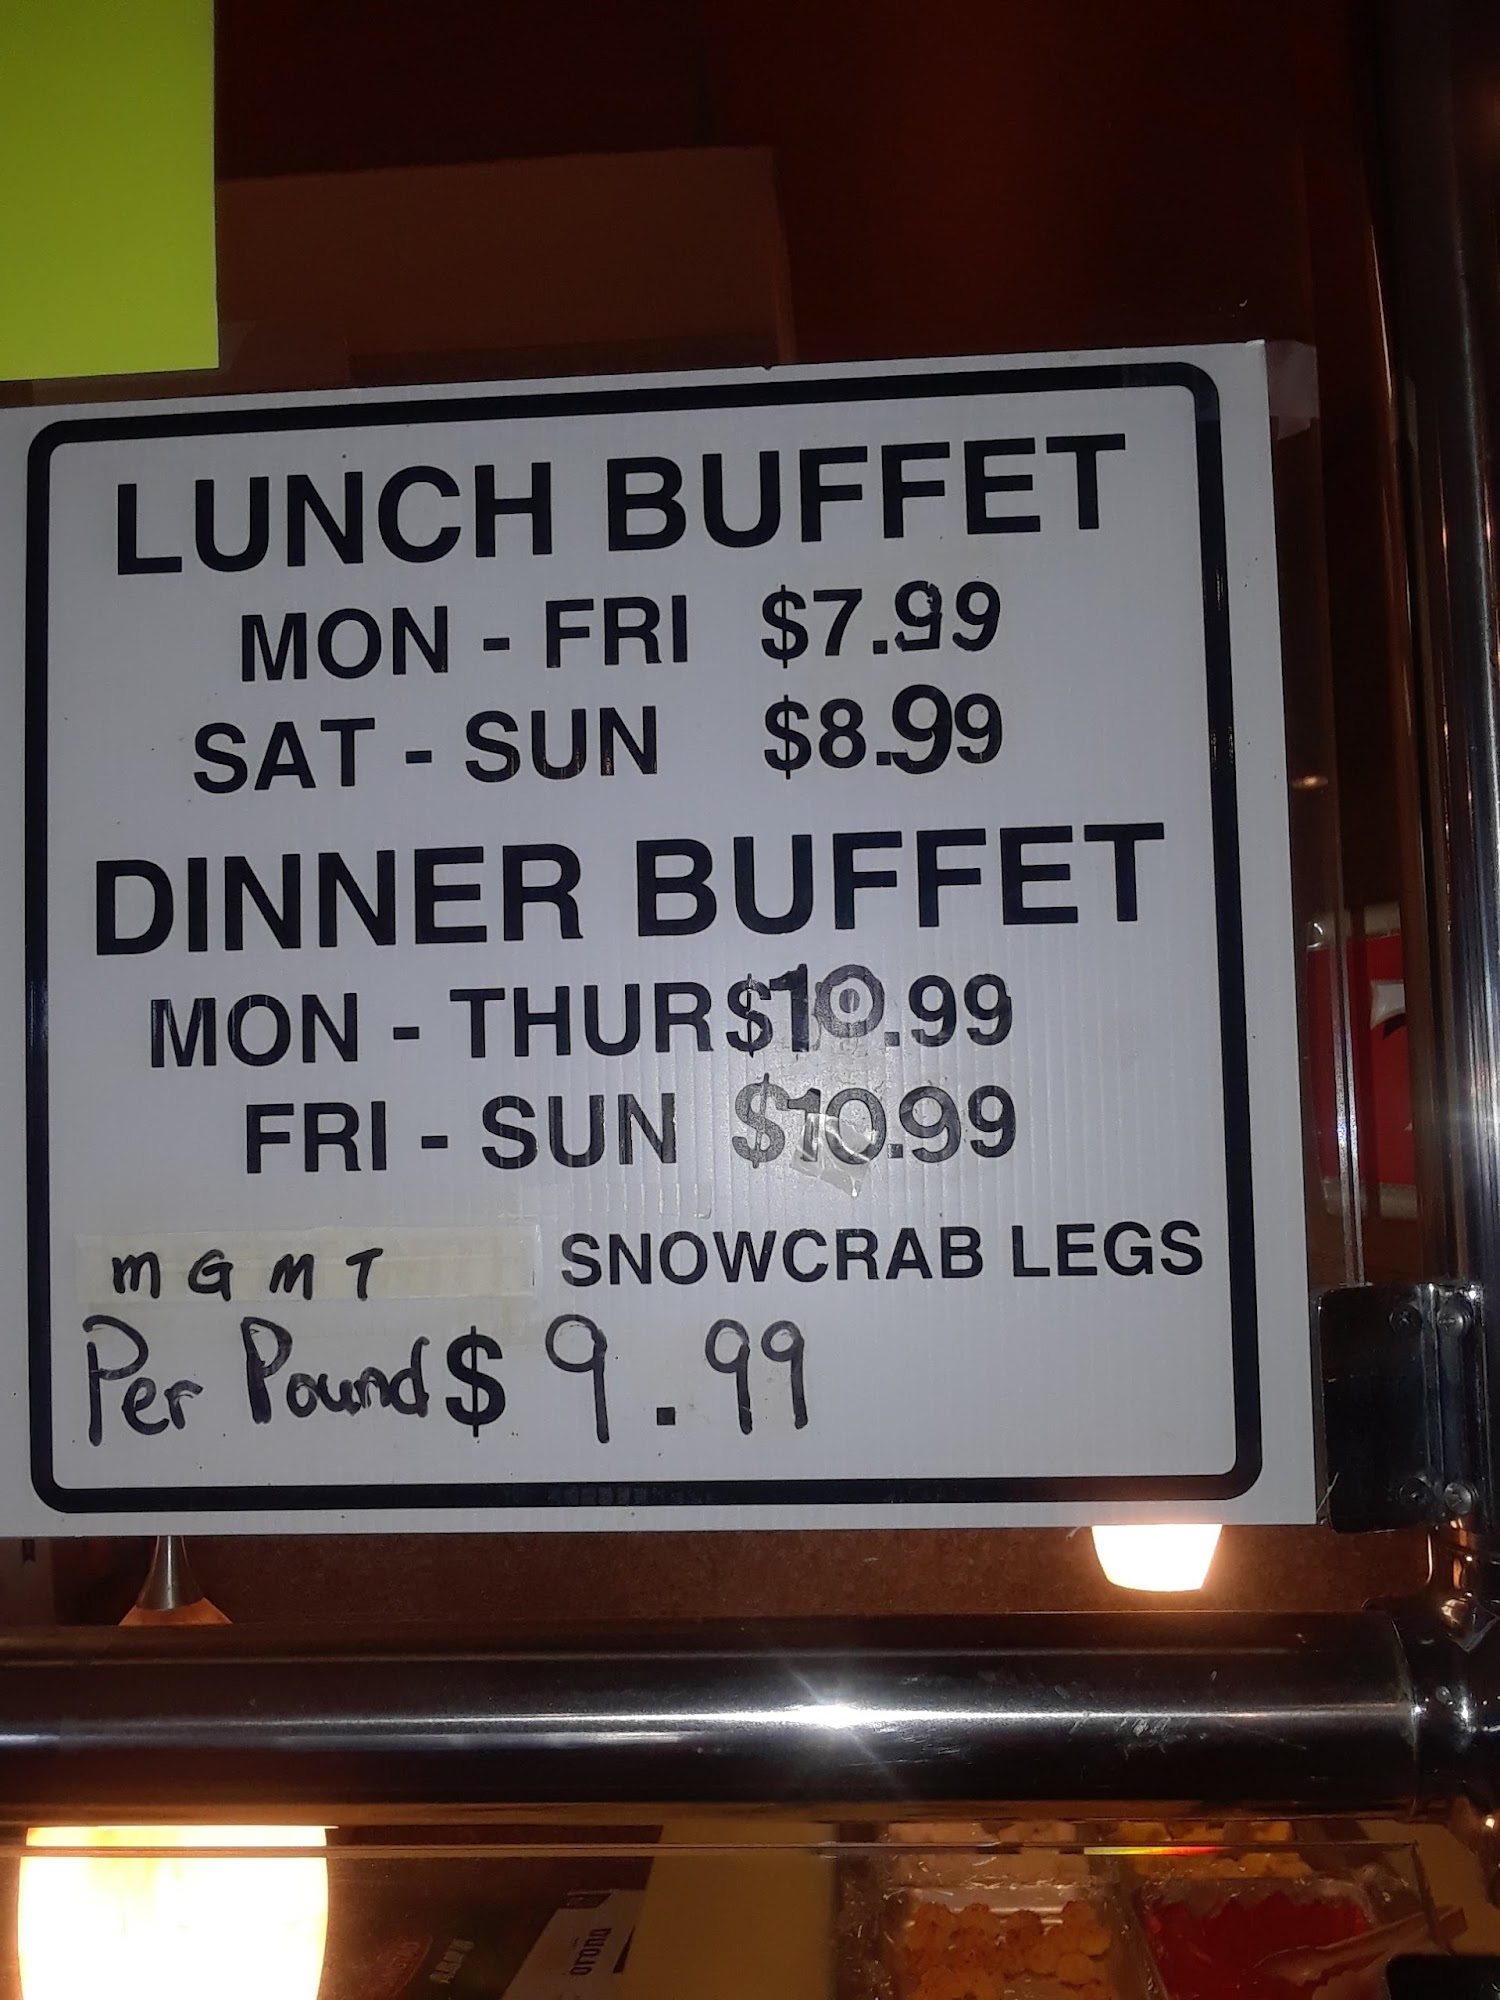 LUNCH BUFFET
MON - FRI $7.99
SAT - SUN $8.99
DINNER BUFFET
MON - THUR $10.99
FRI - SUN $10.99
MGMT SNOWCRAB LEGS
Per Pound $9.99